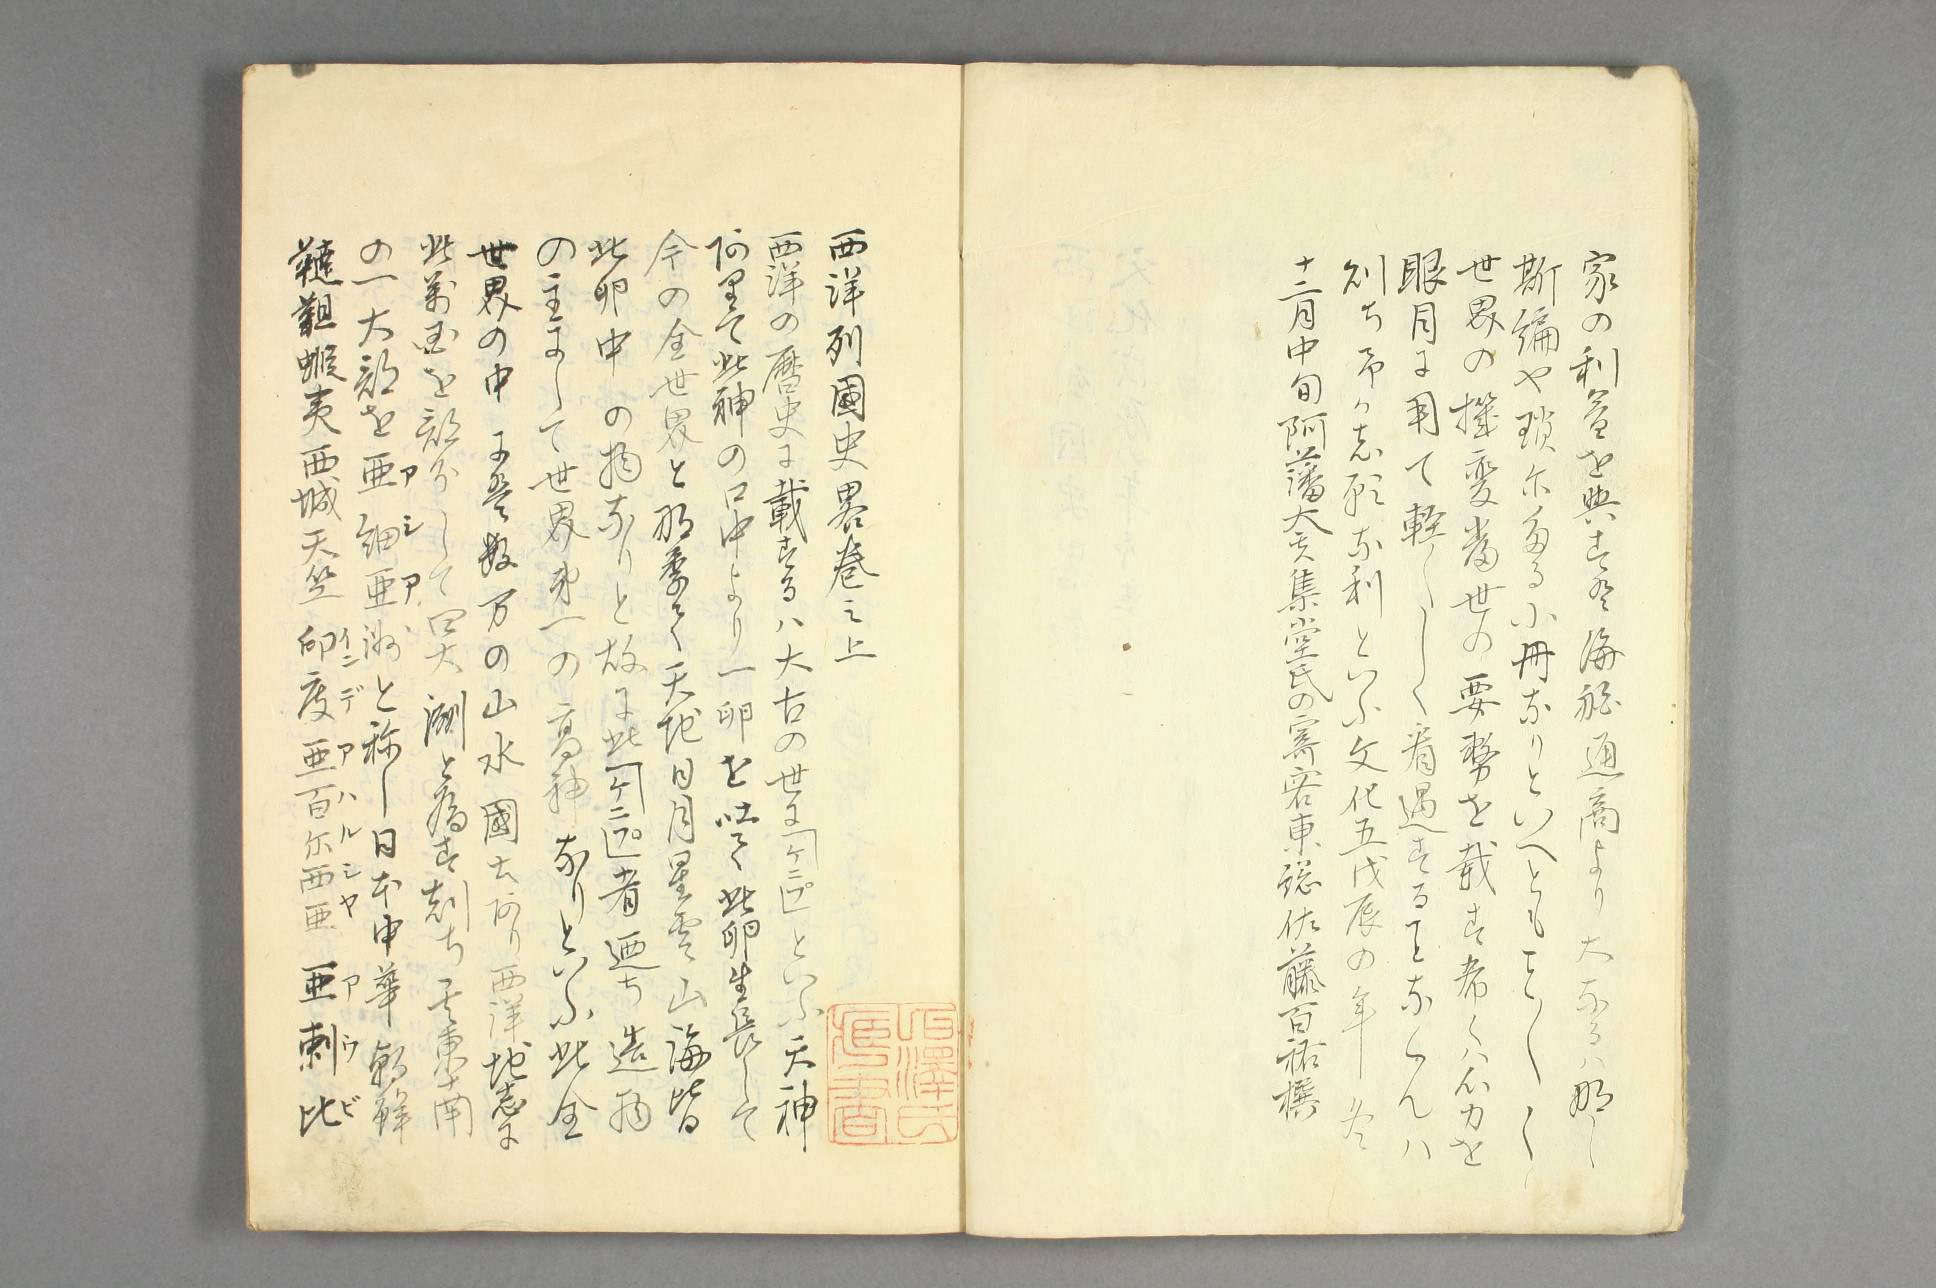 家の利益を興すは海舶通商より大なるハ那し
斯編や瑣尓多る小冊なりといへとも
世界の機変当世の要務を載す者くハ心力を
眼目に用て軽〱しく看過することなくんハ
則ち予か志願な利といふ文化五戊辰の年冬
十二月中旬阿藩大夫集堂氏の寓客東総佐藤百祐撰
西洋列國史畧巻之上
西洋の暦史に載するハ大古の世に「ケニプ」といふ天神
阿里て此神の口中より一卵を吐て此卵生長して
今の全世界と那る天地日月星雲山海皆
此卵中の物なりと故に此「ケニプ」者廼ち造物
の主にして世界第一の高神なりといふ此全
世界の中に数万の山水國土阿り西洋地志に
此萬国を部分して四大洲と為す則ち其東南
の一大部を亜細亜洲と称し日本中華朝鮮
アシア
韃靼蝦夷西域天竺印度亜百尓西亜亜剌比
インデアハルシヤアラビ